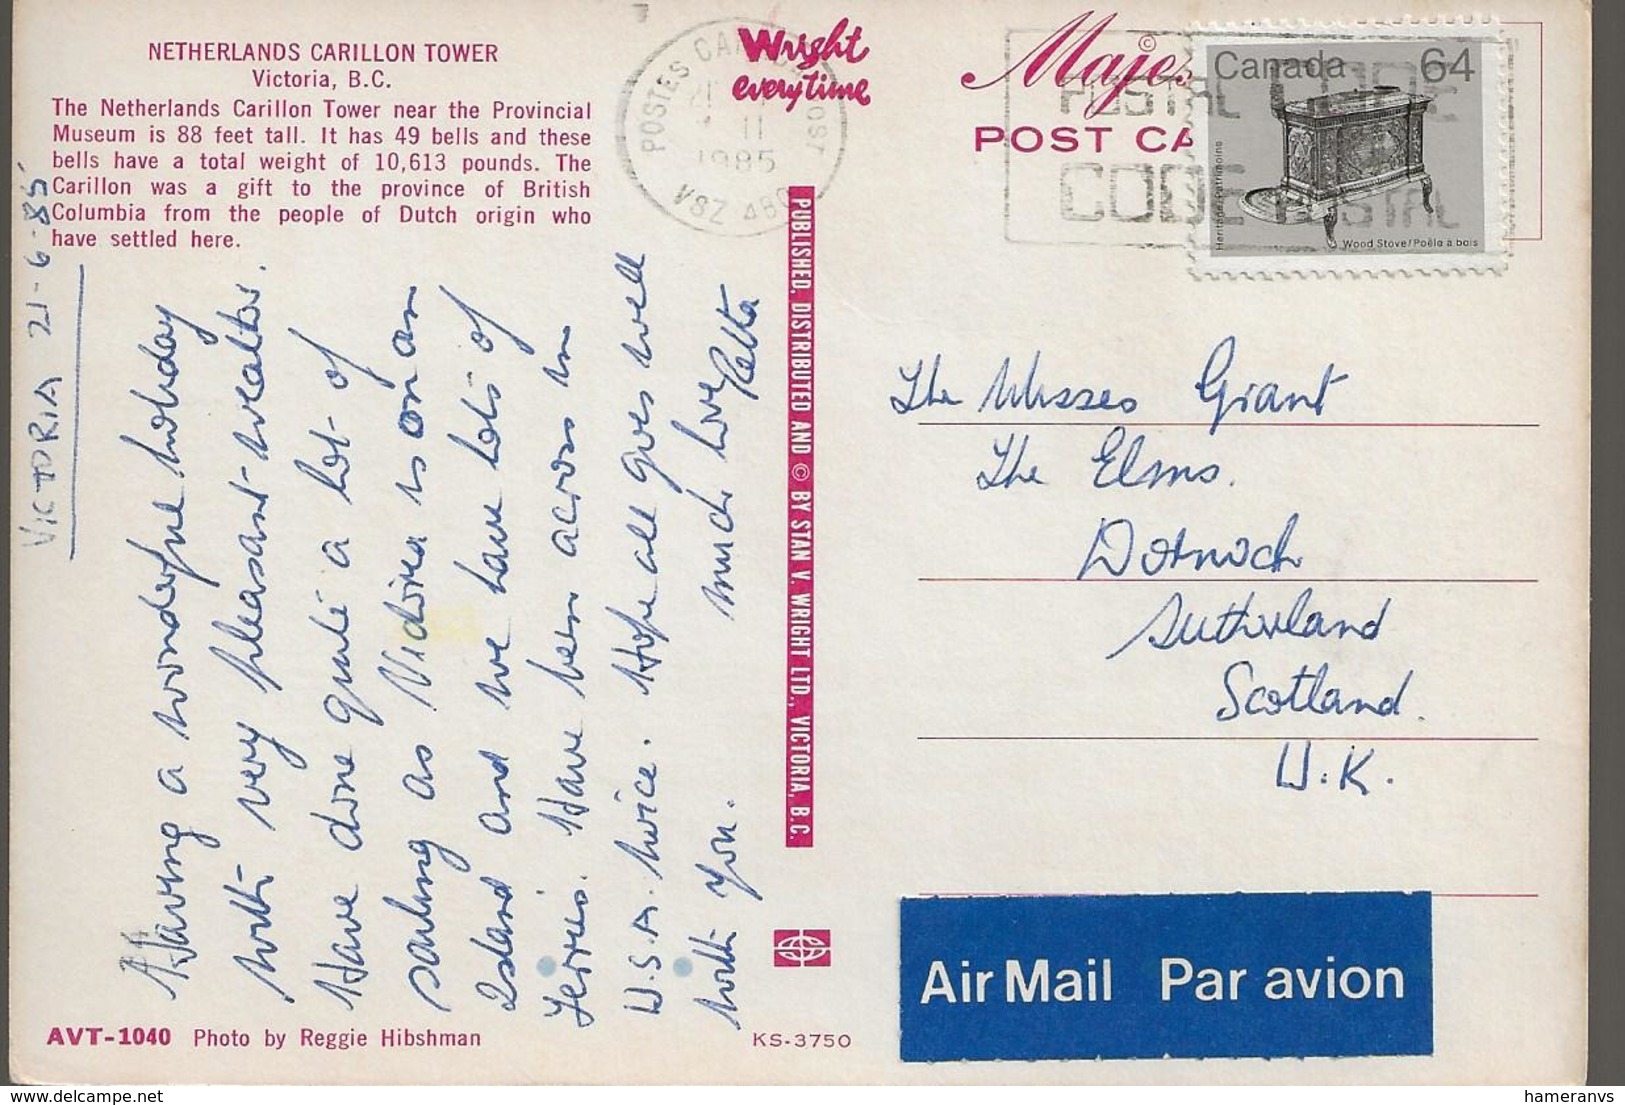 NETHERLANDS CARILLON TOWER
Victoria, B.C.
The Netherlands Carillon Tower near the Provincial
Museum is 88 feet tall. It has 49 bells and these
bells have a total weight of 10,613 pounds. The
Carillon was a gift to the province of British
Columbia from the people of Dutch origin who
have settled here.
VICTORIA 21-6-85
Having a wonderful holiday
with very pleasant weather.
Have done quite a lot of
sailing as Victoria is on an
Island and we have lots of
Ferries. Have been across in
U.S.A. twice. Hope all goes well
with you. much love
AVT-1040 Photo by Reggie Hibshman
KS-3750
Wright
everytime
POSTES CANADA POST
11
1985
V8Z 4B0
PUBLISHED, DISTRIBUTED AND © BY STAN V. WRIGHT LTD., VICTORIA, B.C.
©
Majes
POST CA
POSTAL CODE
CODE POSTAL
Canada 64
Heritage/Patrimoine
Wood Stove/Poêle à bois
The Misses Grant
The Elms.
Dornoch
Sutherland
Scotland.
U.K.
Air Mail Par avion
hippostcard.com
hameranvs